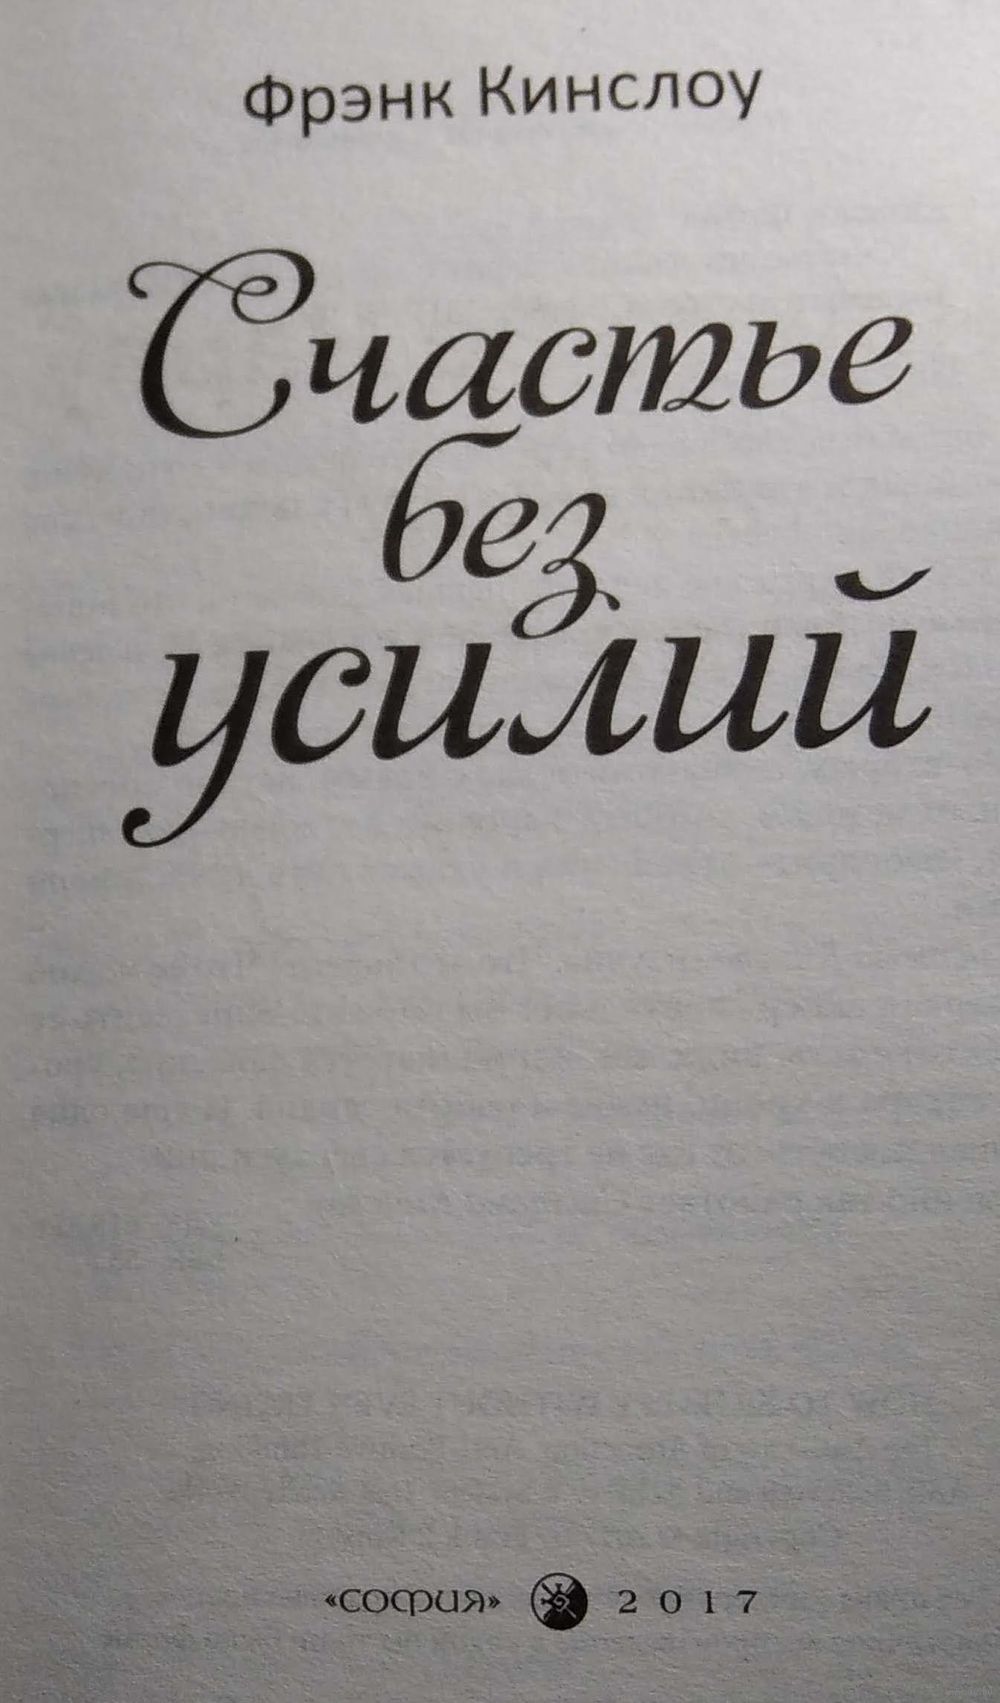 Фрэнк Кинслоу
Счастье
без
усилий
«СОФИЯ» 2017